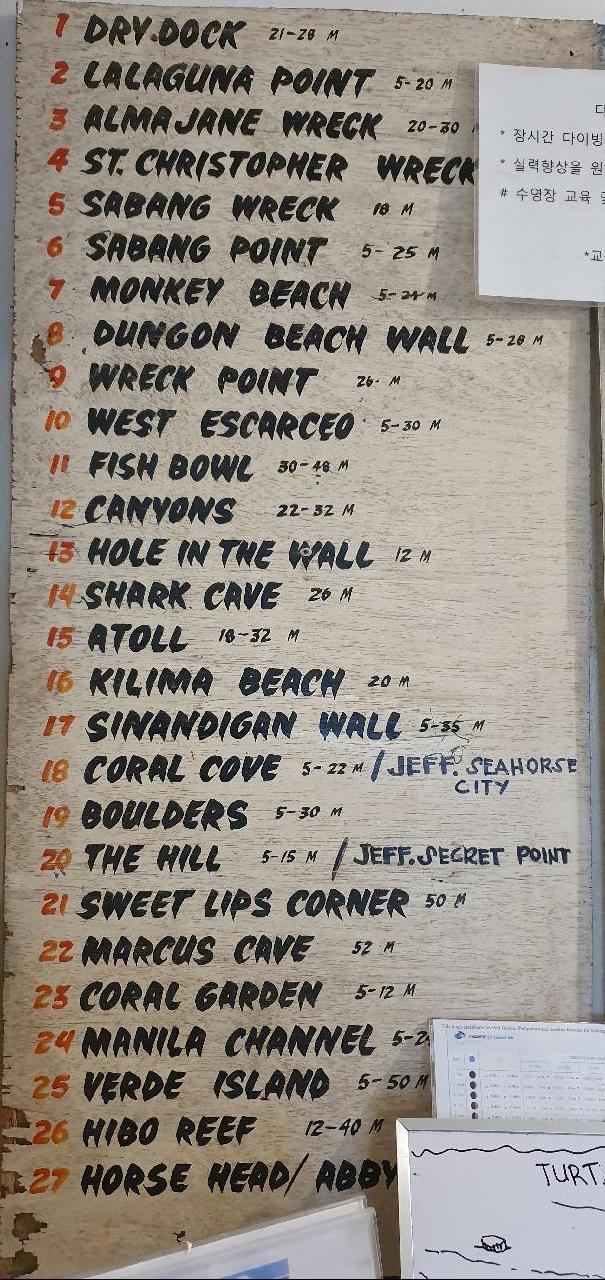 1 DRY.DOCK 21-28 M
2 LALAGUNA POINT 5-20 M
3 ALMAJANE WRECK 20-30
4 ST. CHRISTOPHER WRECK
5 SABANG WRECK 18 M
6 SABANG POINT 5-25 M
7 MONKEY BEACH 5-21 M
8 DUNGON BEACH WALL 5-28 M
9 WRECK POINT 26 M
10 WEST ESCARCEO 5-30 M
11 FISH BOWL 30-48 M
12 CANYONS 22-32 M
13 HOLE IN THE WALL 12 M
14 SHARK CAVE 26 M
15 ATOLL 18-32 M
16 KILIMA BEACH 20 M
17 SINANDIGAN WALL 5-35 M
18 CORAL COVE 5-22 M / JEFF. SEAHORSE
CITY
19 BOULDERS 5-30 M
20 THE HILL 5-15 M / JEFF.SECRET POINT
21 SWEET LIPS CORNER 50 M
22 MARCUS CAVE 52 M
23 CORAL GARDEN 5-12 M
24 MANILA CHANNEL 5-2
25 VERDE ISLAND 5-50 M
26 HIBO REEF 12-40 M
27 HORSE HEAD/ ABBY
다
* 장시간 다이빙
* 실력향상을 원
# 수영장 교육 및
*교
TURT